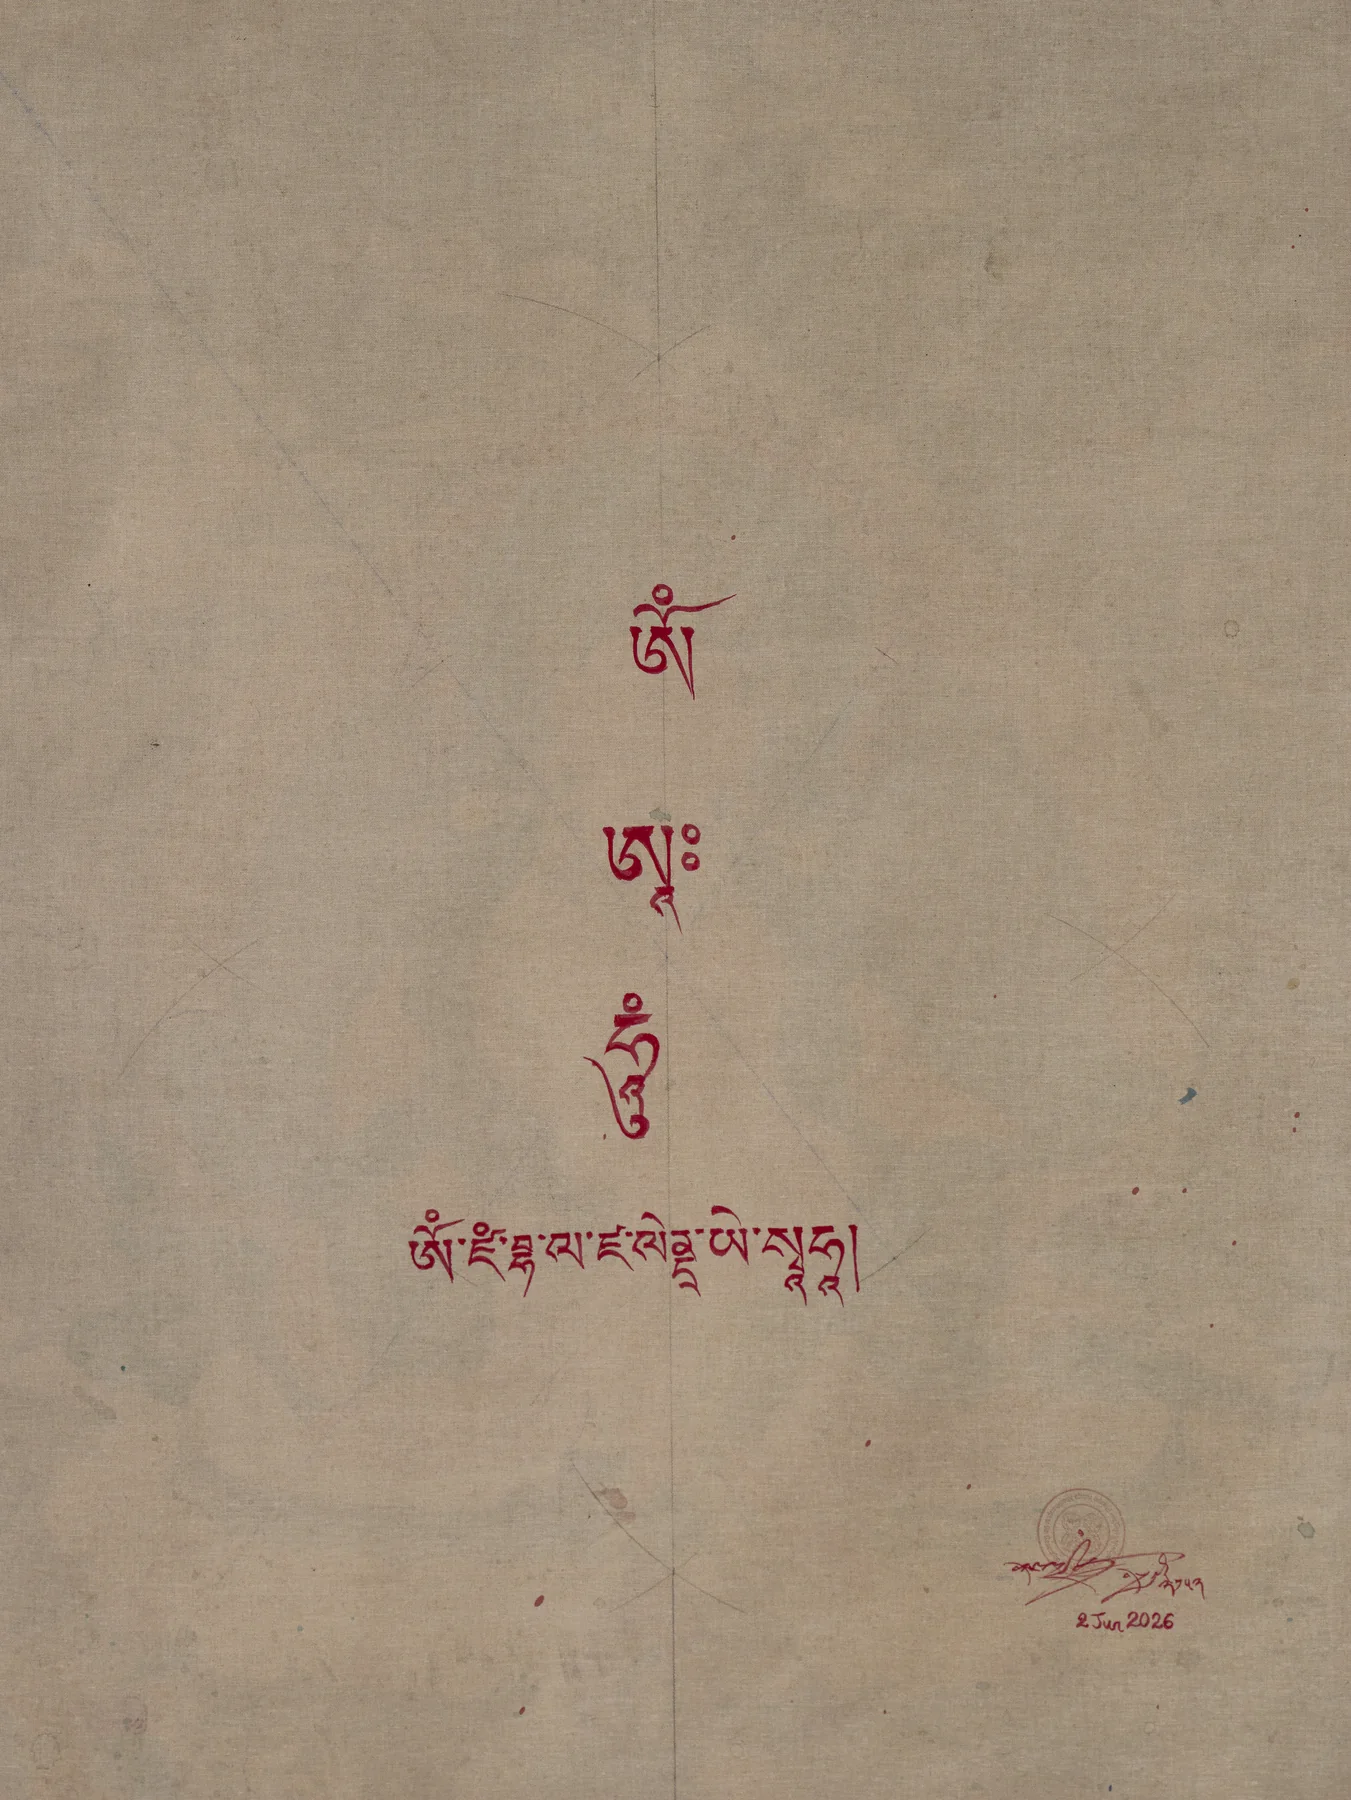 ཨོཾ
ཨཱཿ
ཧཱུཾ
ཨོཾ་ཛཾ་བྷ་ལ་ཛ་ལེནྡྲ་ཡེ་སྭཱཧཱ།
2 Jun 2026